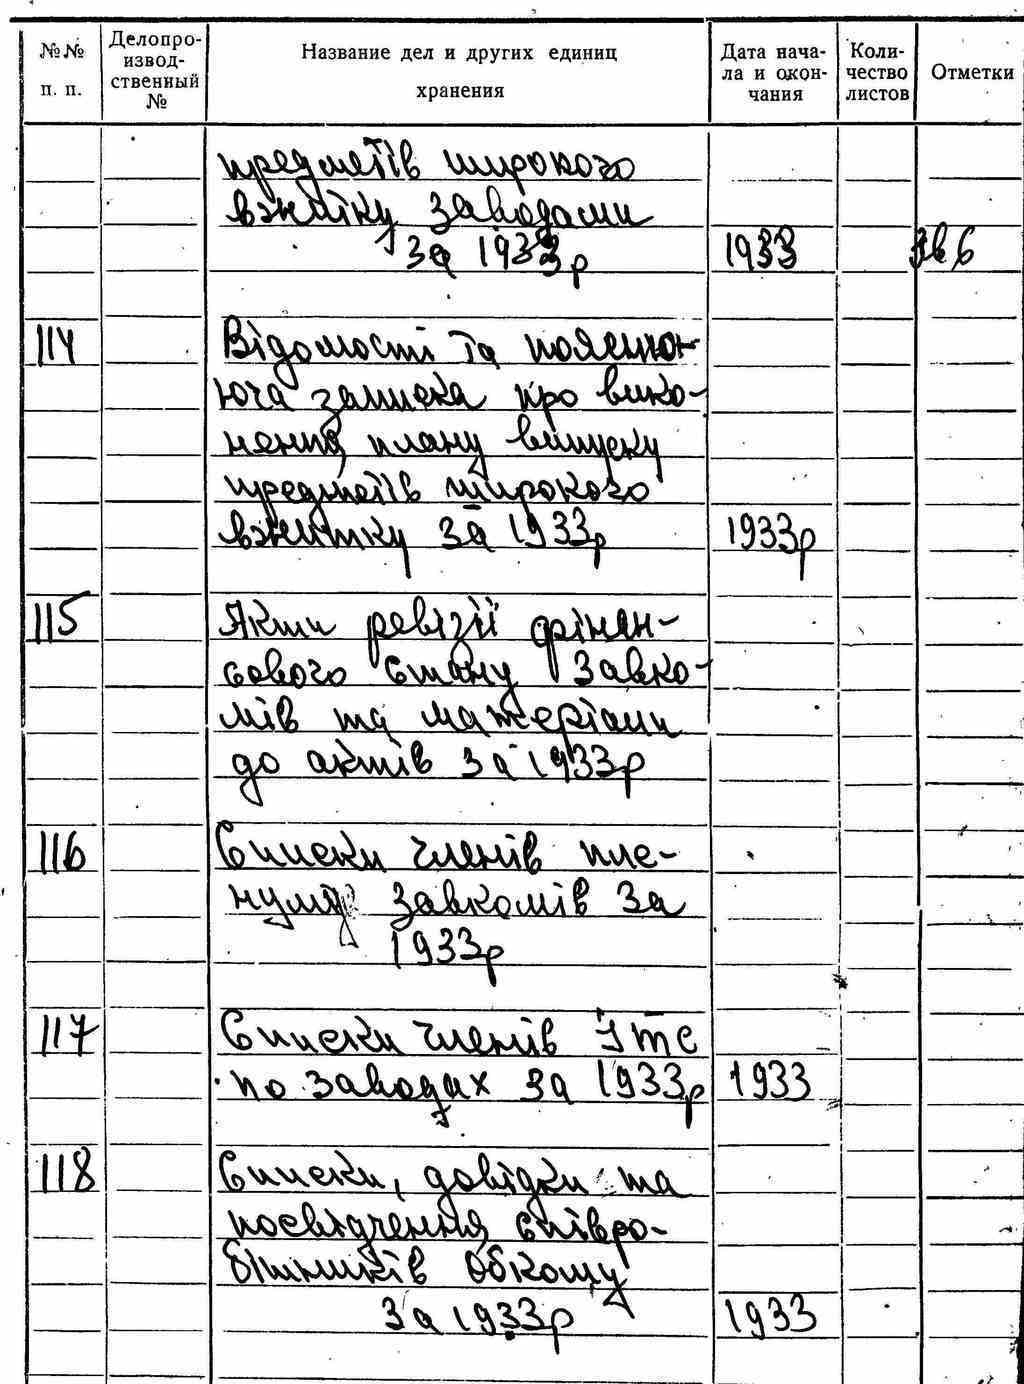 №№ п. п.
Делопро-
извод-
ственный
№
Название дел и других единиц
хранения
Дата нача-
ла и окон-
чания
Коли-
чество
листов
Отметки
предметів широкого
вжитку заводами
за 1933р 1933
114 Відомості та пояснюю-
юча записка про вико-
нення плану випуску
предметів широкого
вжитку за 1933р 1933р
115 Акти ревізії фінан-
сового стану завко-
мів та матеріали
до актів за 1933р
116 Списки членів пле-
нумів завкомів за
1933р
117 Списки членів ІТС
по заводах за 1933р 1933
118 Списки, довідки та
посвідчення співро-
бітників обкому
за 1933р 1933